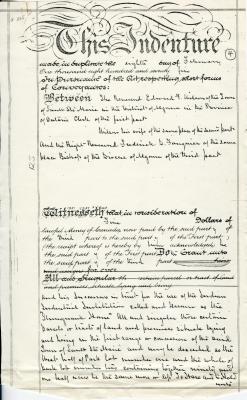 This Indenture
made in duplicate the eighth day of February
One thousand eight hundred and seventy five
In Pursuance of the Act respecting short forms
of Conveyances:
Between The Reverend Edward F. Wilson of the Town
of Sault Ste Marie in the District of Algoma in the Province
of Ontario Clerk of the first part
wife of the second part
And the Right Reverend Frederick D. Fauquier of the same
place Bishop of the Diocese of Algoma of the third part
Witnesseth that in consideration of
Five Dollars of
lawful Money of Canada now paid by the said party of
the third part to the said party of the first part
(the receipt whereof is hereby by him acknowledged) he
the said party of the first part Doth Grant unto
the said party of the third part
All and Singular
and premises situate lying and being
and his Successors in trust for the use of the Indian
Industrial Institution called and known as the
"Shingwauk Home" All and singular those certain
parcels or tracts of land and premises situate lying
and being in the
Town of Sault Ste Marie and may be described as the
West half of Park lot number one and the whole of
Park lot number two containing together ninety